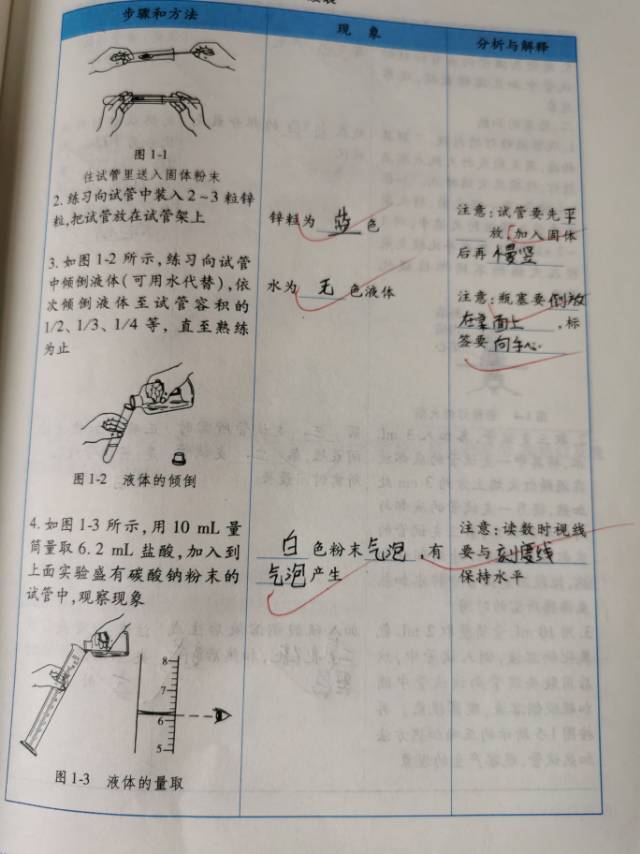 步骤和方法
现象
分析与解释
图 1-1
往试管里送入固体粉末
2. 练习向试管中装入 2~3 粒锌
粒,把试管放在试管架上
锌粒为 蓝 色
注意:试管要先平
放,加入固体
后再 慢竖
3. 如图 1-2 所示,练习向试管
中倾倒液体(可用水代替),依
次倾倒液体至试管容积的
1/2、1/3、1/4 等,直至熟练
为止
水为 无 色液体
注意:瓶塞要倒放
在桌面上,标
签要 向手心.
图 1-2 液体的倾倒
4. 如图 1-3 所示,用 10 mL 量
筒量取 6.2 mL 盐酸,加入到
上面实验盛有碳酸钠粉末的
试管中,观察现象
白 色粉末 气泡,有
气泡 产生
注意:读数时视线
要与 刻度线
保持水平
8
7
6
5
图 1-3 液体的量取